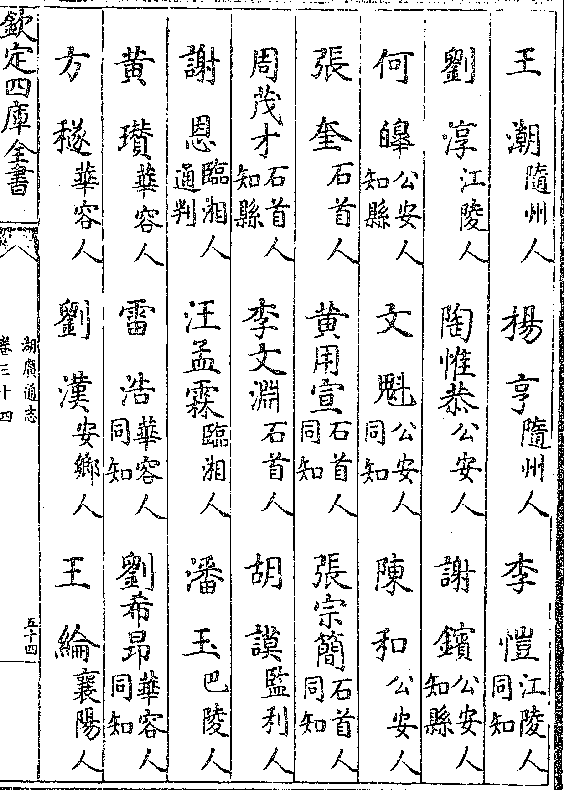 王潮隨州人 楊亨隨州人 李愷江陵人同知
劉淳江陵人 陶惟恭公安人 謝鑌公安人知縣
何皥公安人知縣 文魁公安人同知 陳和公安人
張奎石首人 黃用宣石首人同知 張宗簡石首人同知
周茂才石首人知縣 李文淵石首人 胡謨監利人
謝恩臨湘人通判 汪孟霖臨湘人 潘玉巴陵人
黃瓚華容人 雷浩華容人同知 劉希昂華容人同知
方檖華容人 劉漢安鄉人 王綸襄陽人
欽定四庫全書 湖廣通志卷三十四 五十四